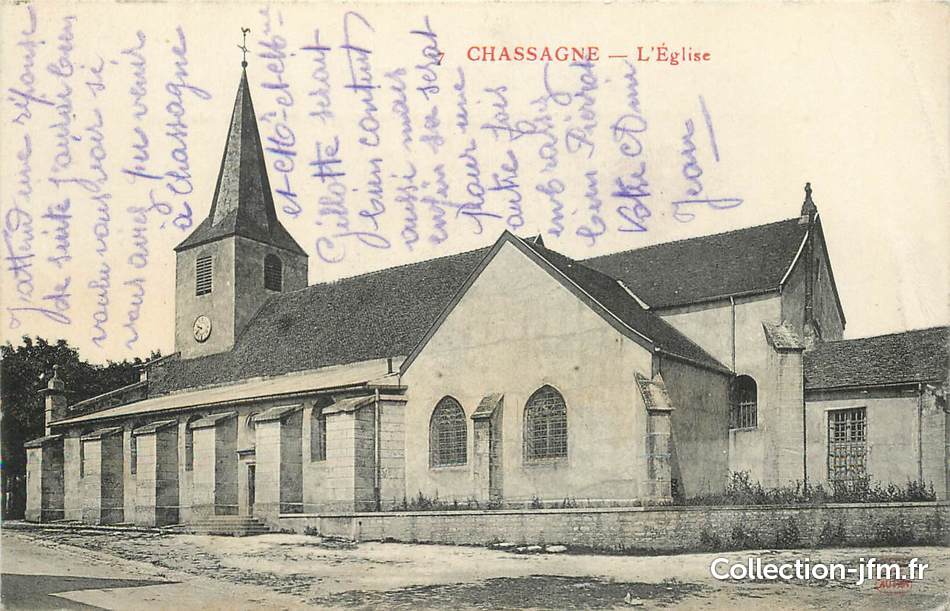 7 CHASSAGNE — L'Église
J'attend une réponse
de suite j'aurai bien
voulu vous voir se
vous avez pu venir
à Chassagne
Gillotte serait
bien content
aussi mais
enfin se serat
pour une
autre fois
bien
Votre Ami
Jean
Collection-jfm.fr